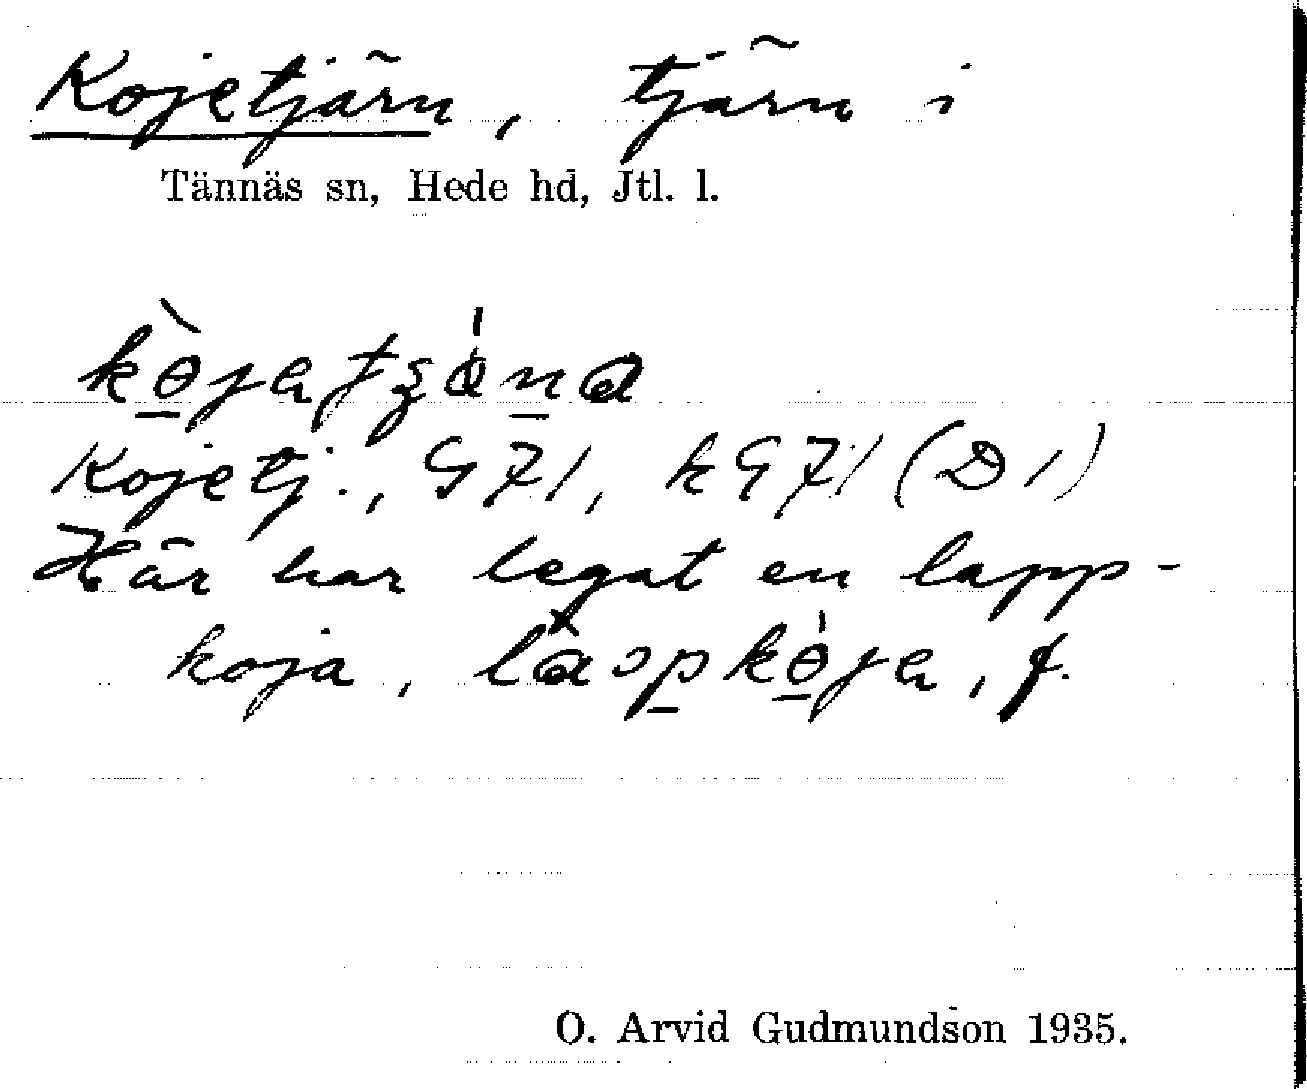 Kojetjärn, tjärn i
Tännäs sn, Hede hd, Jtl. l.
Kojetj., G 71, kG71 (D 1)
Här har legat en lapp-
koja, f.
O. Arvid Gudmundson 1935.